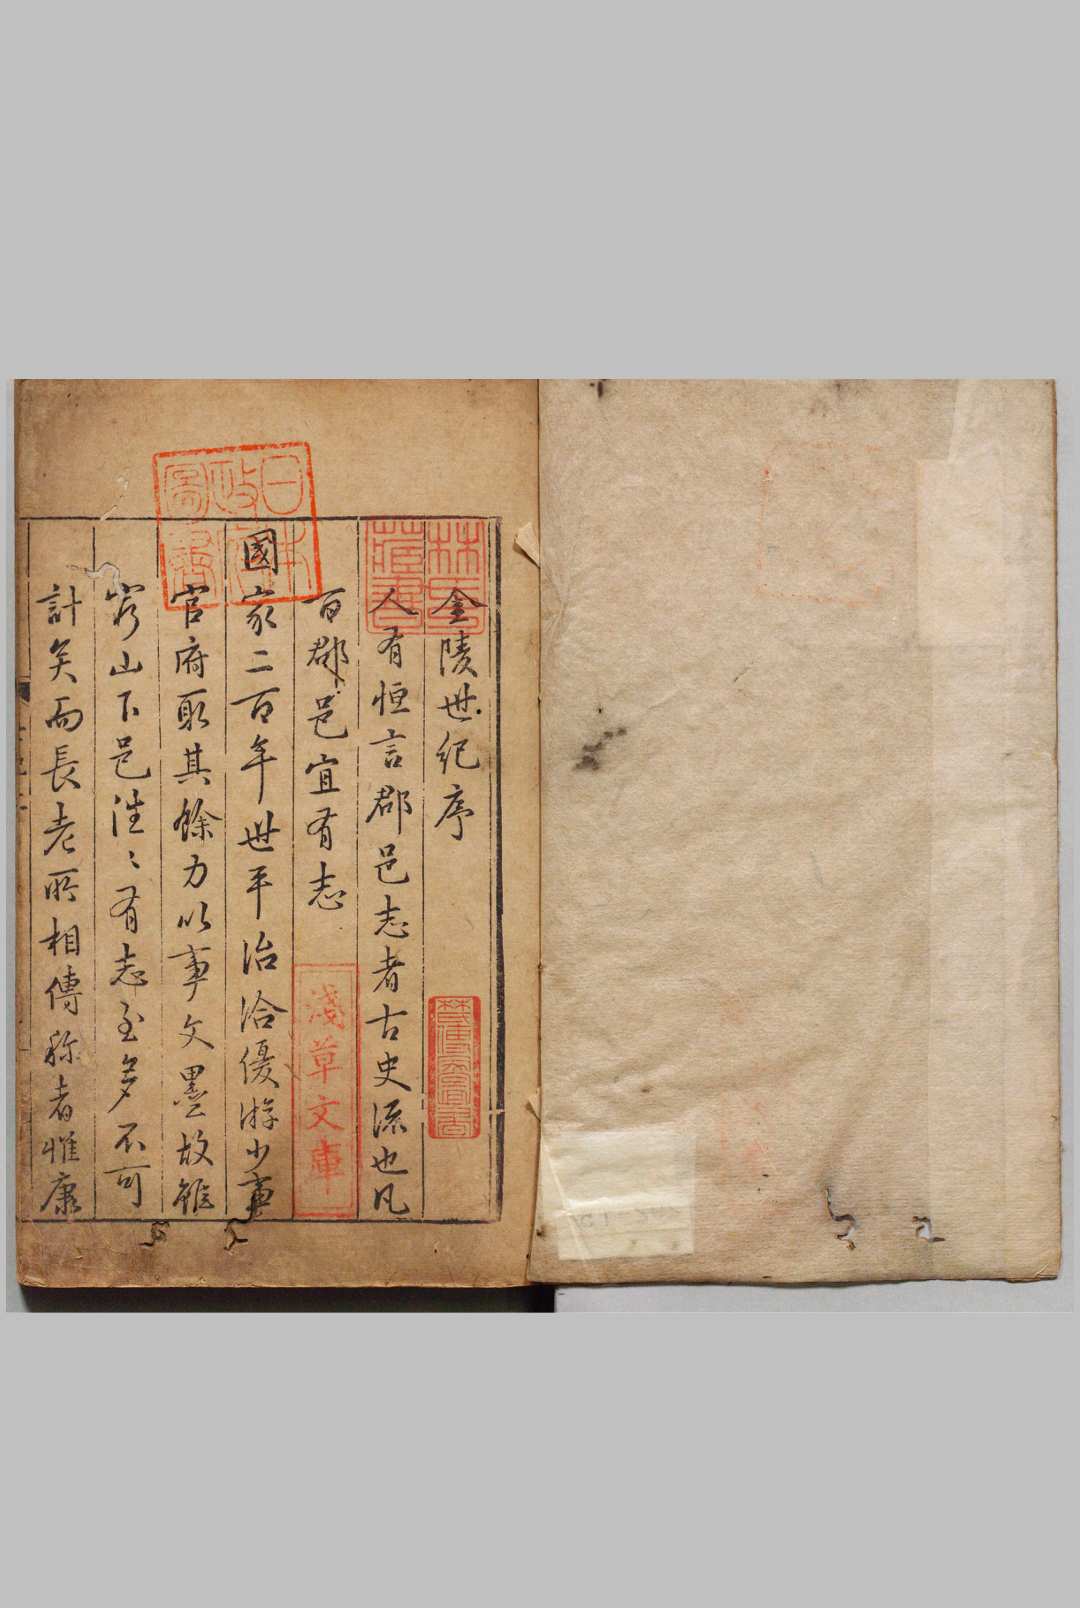 金陵世紀序
人有恒言郡邑志者古史流也凡
百郡邑宜有志
國家二百年世平治洽優游少事
官府取其餘力以事文墨故雖
窮山下邑往〻有志至多不可
計矣而長老所相傳称者惟康
林氏藏書
日本政府圖書
淺草文庫